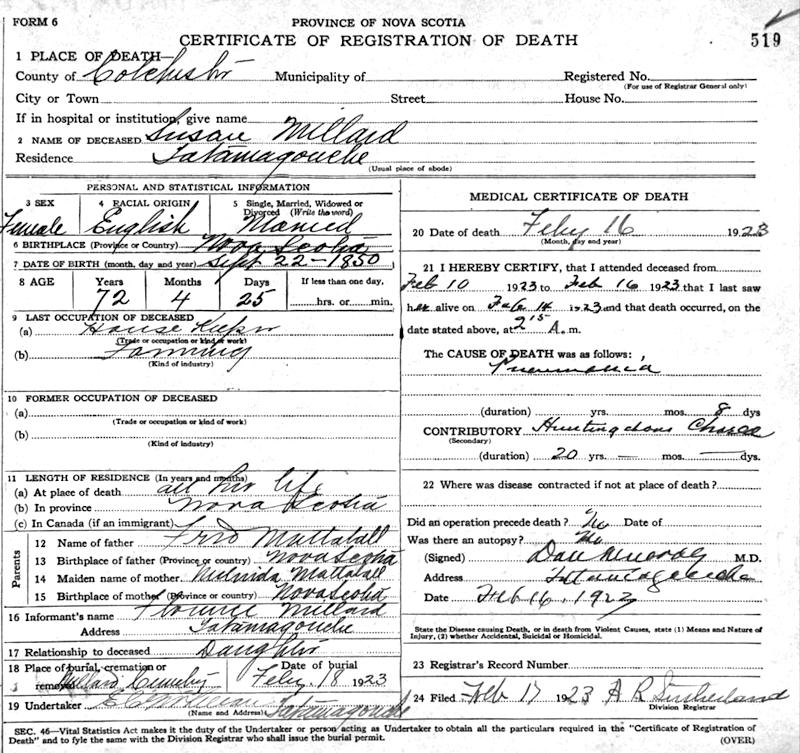 FORM 6
PROVINCE OF NOVA SCOTIA
CERTIFICATE OF REGISTRATION OF DEATH
519
1 PLACE OF DEATH—
County of Colchester Municipality of Registered No.
(For use of Registrar General only)
City or Town Street House No.
If in hospital or institution, give name
2 NAME OF DECEASED Susan Millard
Residence Tatamagouche
(Usual place of abode)
PERSONAL AND STATISTICAL INFORMATION
3 SEX 4 RACIAL ORIGIN 5 Single, Married, Widowed or Divorced (Write the word)
Female English Married
6 BIRTHPLACE (Province or Country) Nova Scotia
7 DATE OF BIRTH (month, day and year) Sept 22-1850
8 AGE Years Months Days If less than one day,
72 4 25 hrs. or min.
9 LAST OCCUPATION OF DECEASED
(a) House Keeper
(Trade or occupation or kind of work)
(b) Farming
(Kind of industry)
10 FORMER OCCUPATION OF DECEASED
(a)
(Trade or occupation or kind of work)
(b)
(Kind of industry)
11 LENGTH OF RESIDENCE (In years and months)
(a) At place of death all her life
(b) In province Nova Scotia
(c) In Canada (if an immigrant)
Parents
12 Name of father Fred Mattatall
13 Birthplace of father (Province or country) Nova Scotia
14 Maiden name of mother Mattatall
15 Birthplace of mother (Province or country) Nova Scotia
16 Informant's name Florence Millard
Address Tatamagouche
17 Relationship to deceased Daughter
18 Place of burial, cremation or removal Date of burial
Millard Cemetery Feby 18 1923
19 Undertaker
(Name and Address) Tatamagouche
MEDICAL CERTIFICATE OF DEATH
20 Date of death Feby 16 1923
(Month, day and year)
21 I HEREBY CERTIFY, that I attended deceased from
Feb 10 1923 to Feb 16 1923 that I last saw
her alive on Feb 14 1923 and that death occurred, on
date stated above, at 2 15 A. m.
The CAUSE OF DEATH was as follows:
Pneumonia
(duration) yrs. mos. 8 dys
CONTRIBUTORY Huntingdons Chorea
(Secondary)
(duration) 20 yrs. — mos. — dys.
22 Where was disease contracted if not at place of death?
Did an operation precede death? No Date of
Was there an autopsy? No
(Signed) Dan Murray M.D.
Address Tatamagouche
Date Feb 16, 1923
State the Disease causing Death, or in death from Violent Causes, state (1) Means and Nature of
Injury, (2) whether Accidental, Suicidal or Homicidal.
23 Registrar's Record Number
24 Filed Feb 17 1923 A R Sutherland
Division Registrar
SEC. 46—Vital Statistics Act makes it the duty of the Undertaker or person acting as Undertaker to obtain all the particulars required in the "Certificate of Registration of
Death" and to fyle the same with the Division Registrar who shall issue the burial permit.
(OVER)